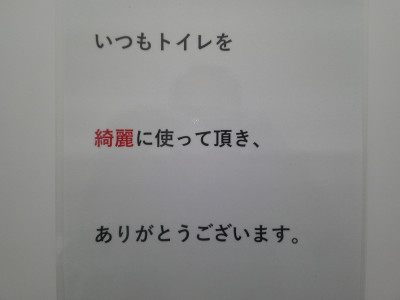 いつもトイレを
綺麗に使って頂き、
ありがとうございます。